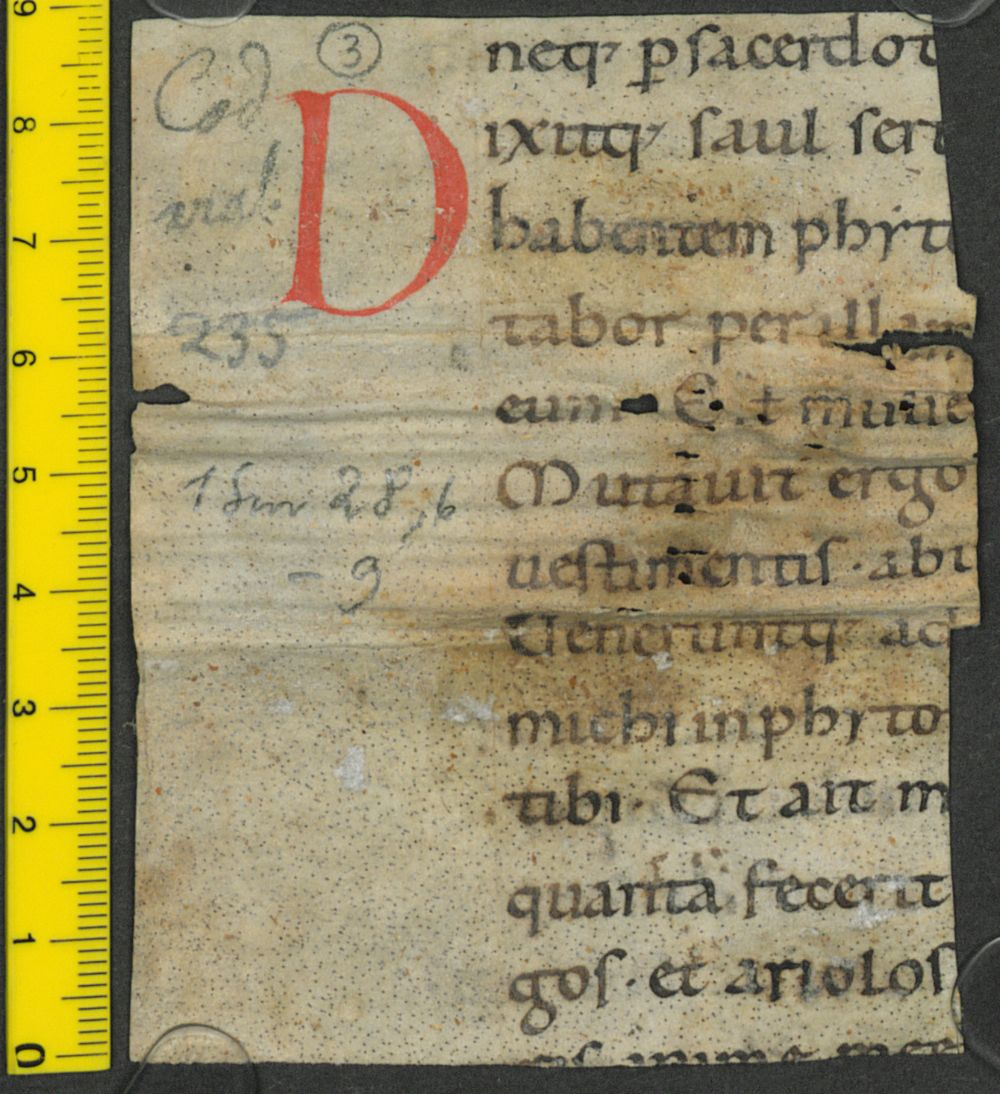 3
Cod
vial.
235
1 Sam 28,6
- 9
neq; p sacerdot
D
ixitq; saul ser
habentem phyt
tabor per illam
eum Et
Mutauit ergo
uestimentis · abi
Ueneruntq; ad
michi in phyto
tibi · Et ait m
quanta fecerit
gos · et ariolos
9
8
7
6
5
4
3
2
1
0